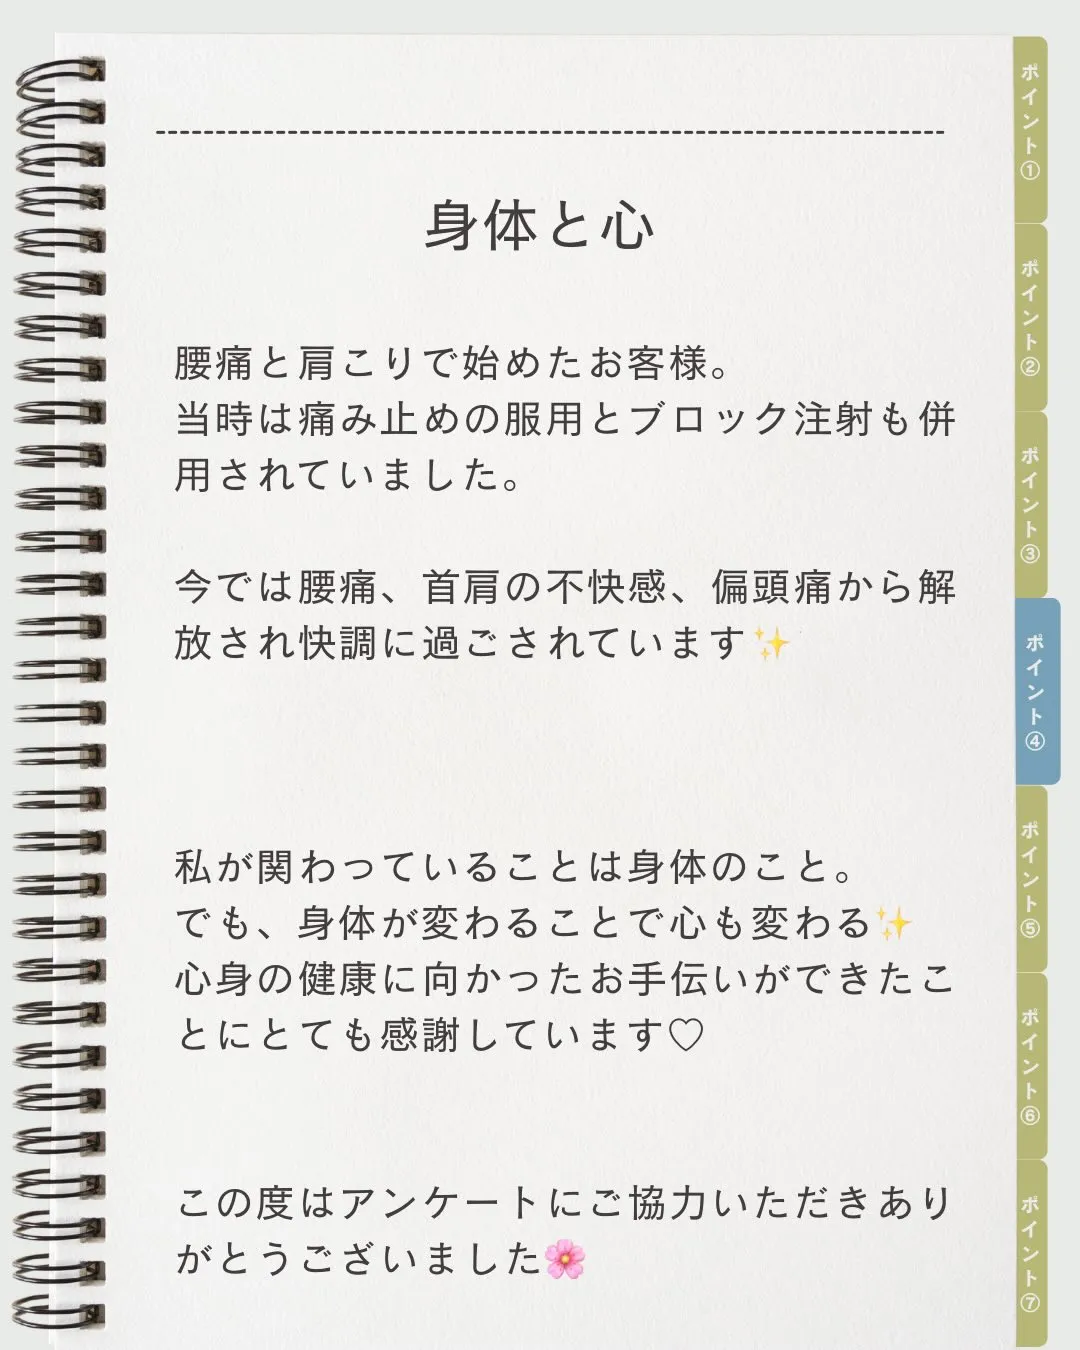 身体と心
腰痛と肩こりで始めたお客様。
当時は痛み止めの服用とブロック注射も併
用されていました。
今では腰痛、首肩の不快感、偏頭痛から解
放され快調に過ごされています✨
私が関わっていることは身体のこと。
でも、身体が変わることで心も変わる✨
心身の健康に向かったお手伝いができたこ
とにとても感謝しています♡
この度はアンケートにご協力いただきあり
がとうございました🌸
ポイント①
ポイント②
ポイント③
ポイント④
ポイント⑤
ポイント⑥
ポイント⑦